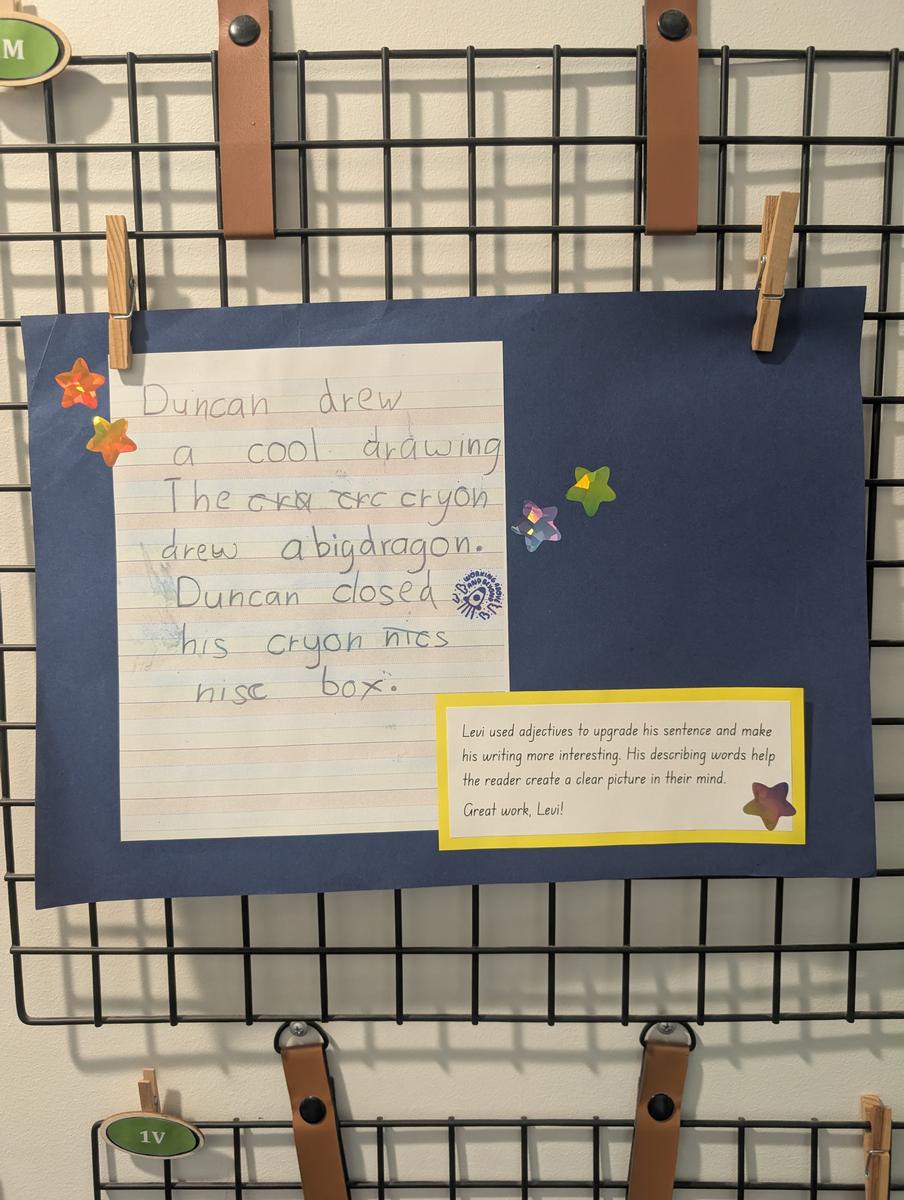 M
Duncan drew
a cool drawing
The cra crc cryon
drew a big dragon.
Duncan closed
his cryon nics
nisc box.
WORKING ABOVE AND BEYOND
Levi used adjectives to upgrade his sentence and make
his writing more interesting. His describing words help
the reader create a clear picture in their mind.
Great work, Levi!
1V